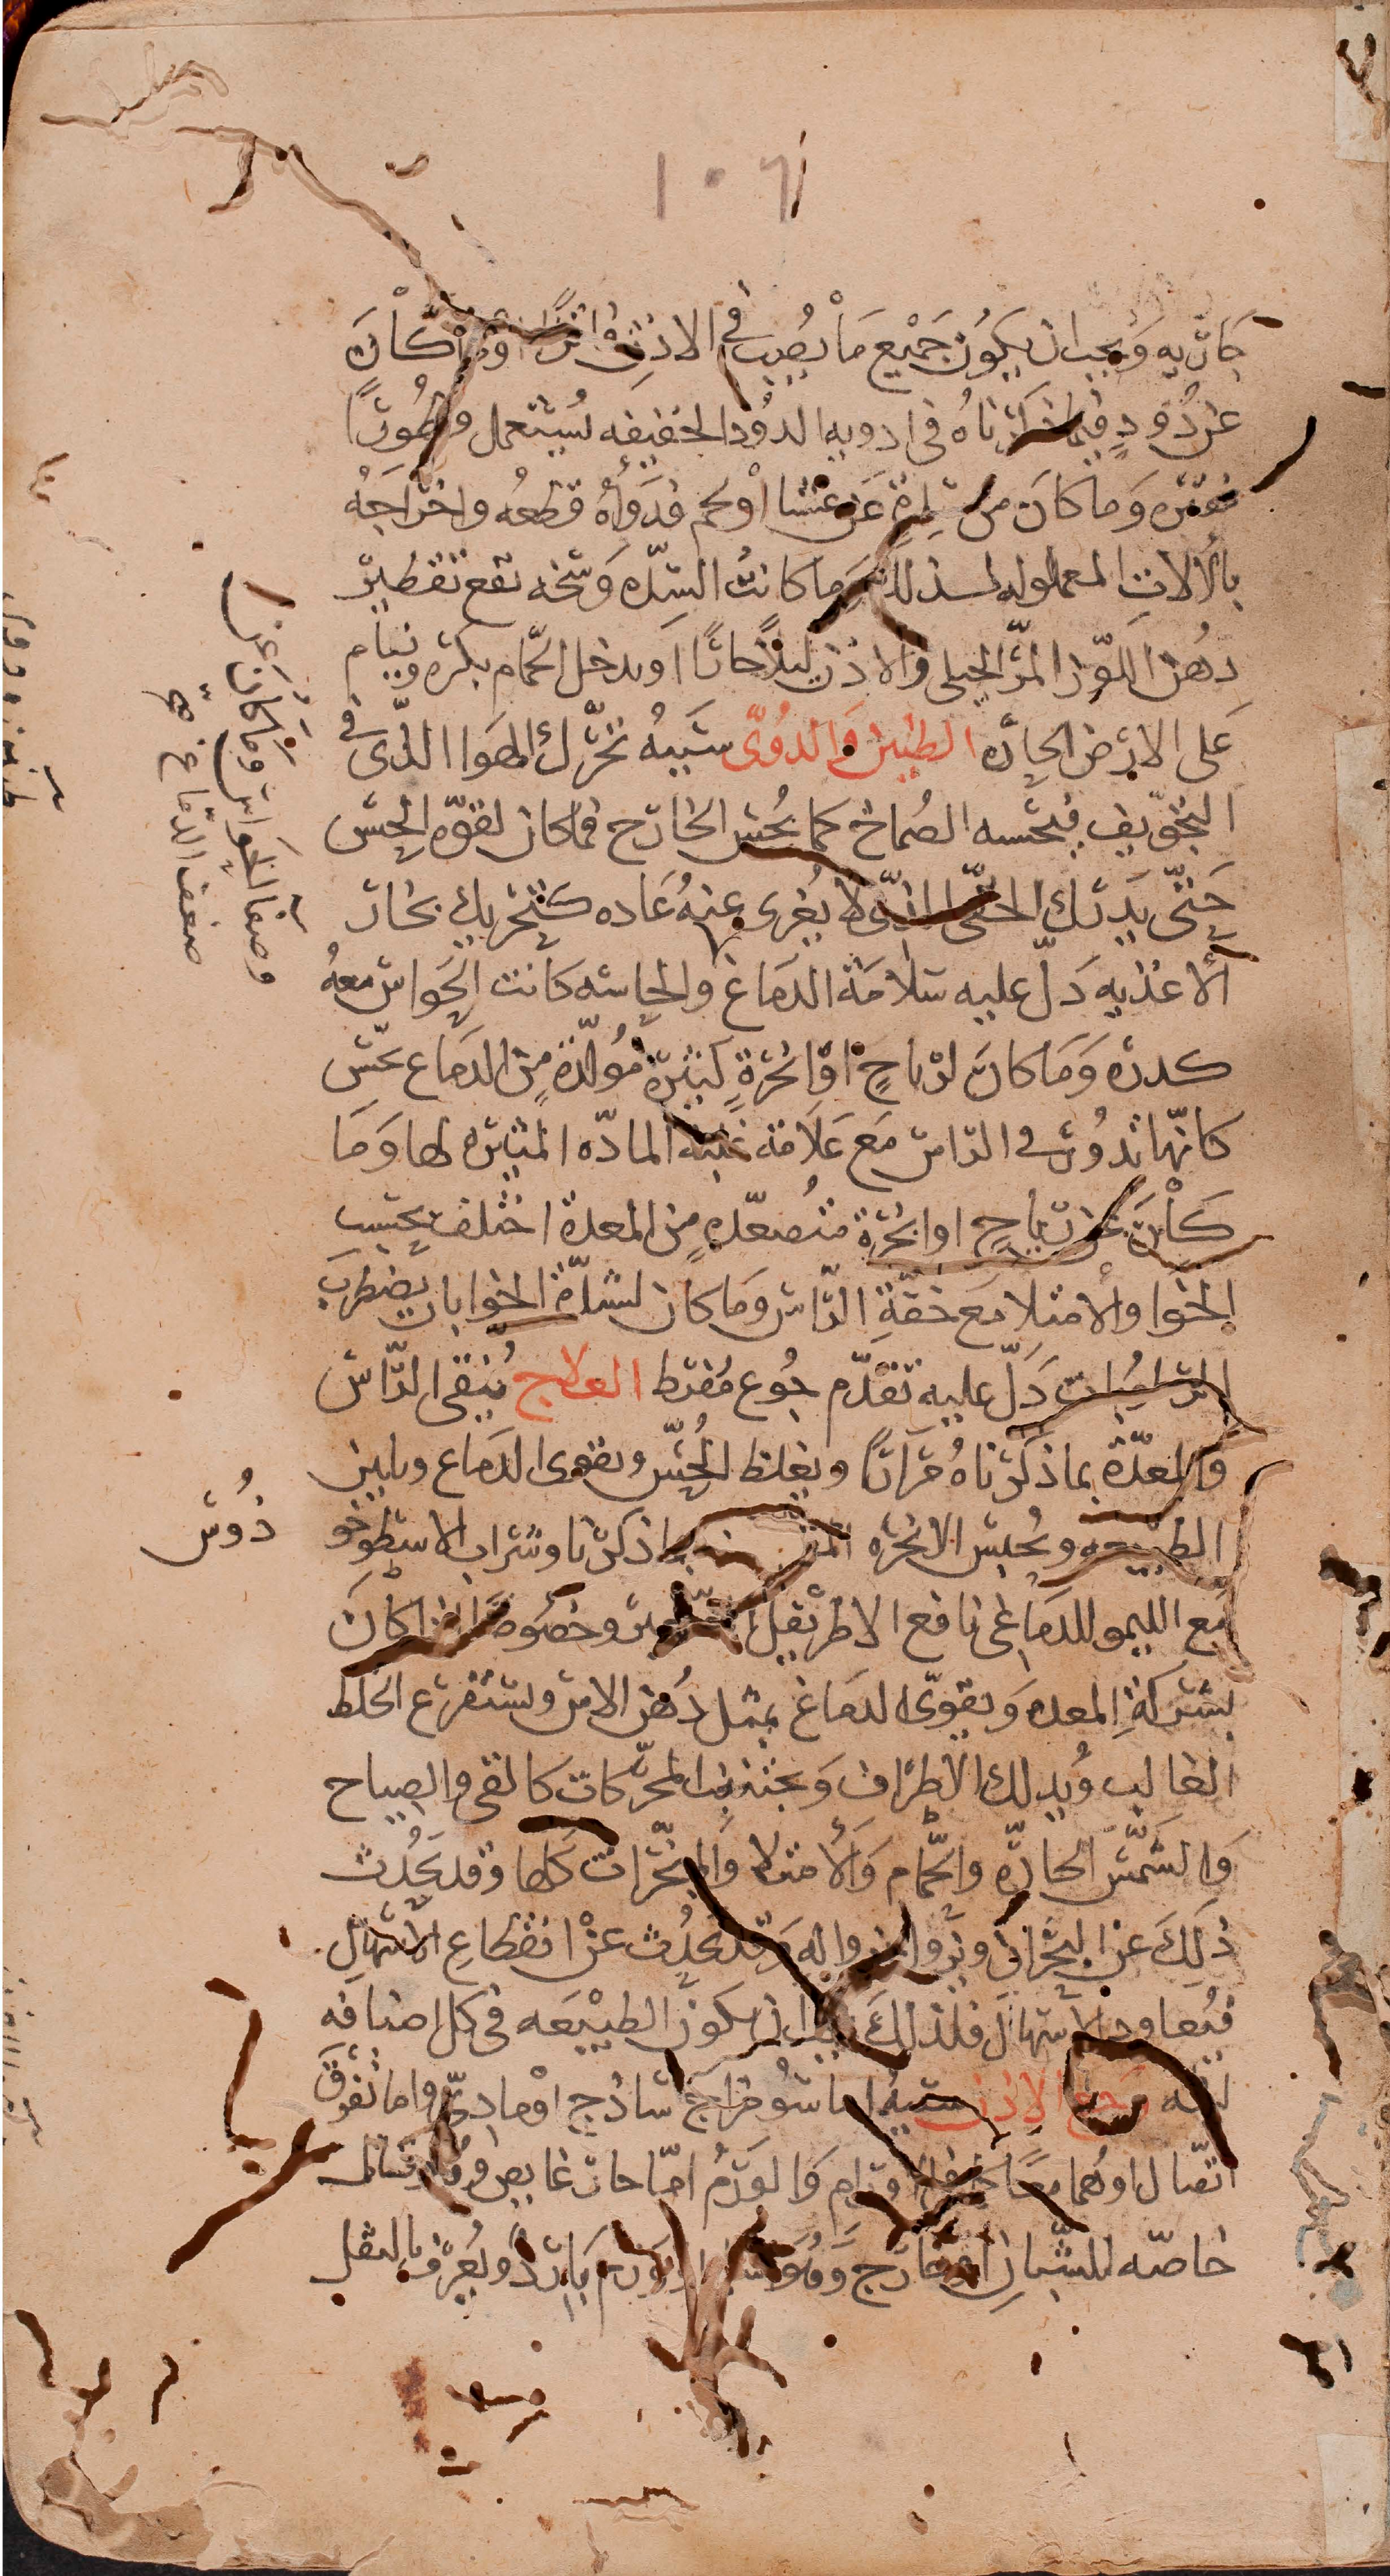 ١٠٦
كان به وَيجب ان يكوُن جَمْيع مَا يُصبب في الاذن فاترًا وَمَا كَان
عن دُودٍ فبما ذكرناهُ في ادويه الدوُد الخفيفه يُستعمل وقطوُرًا
مفتره وَما كانَ من سِدةٍ عَن غشا اوْ لحم فدَوَاؤهُ قطعُه واخراجَهُ
بالالاتِ المعموله لذلك وَما كانتُ السِّدّه وَسخه نفع تقطير
دهُن اللوّز المرّ الجبلى في الاذن ليلاً حارًا او يدخل الحّمام بكره وينام
عَلى الارض الحارّه الطنين وَالدوُىّ سَببهُ تحرّك الهوا الذّى في
التجوّيف فيحسه الصُماخ كما يُحس الخارج فما كان لقوّه الحِس
حَتىّ يدرك الخفّى الذّى لا يُعْرى عنهُ عَاده كتحريك بخار
الأغذيه دَلّ عليه سَلامَة الدمَاغ والحاسّه كانت الحَواس معهُ
كدره وَمَا كانَ لرياحٍ اوْ ابخرةٍ كثيرةٍ مُولدّةٍ من الدماع يحَس
كانهّا تدوُر في الراس مَع عَلاَمة غلبة المادّه المثيره لها وَمَا
كاْنَ عَن رياحٍ او ابخرة متصعّدهٍ من المعدة اختلف بحَسب
الخوَا والأمتلا مَع خفّةِ الرّاس وَما كان لشدّة الخوا بان يضطربَ
الرطوبات دَلّ عليه تقدّم جُوع مُفرط العلاج يُنقى الرّاس
والمعدّة بما ذكرناهُ مرَارًا ويغلظ الحُسّ ويقوى الدمَاع ويلين
الطبيعه ويُحبس الابخره بما ذكرنا وشراب الاسطوخو
دُوس
مَع الليمو للدماغى نافع الاطريفل الصغير وخصوصًا اذا كانَ
بشركةِ المعده وَيقوىّ الدمَاغ بمثل دُهن الاس ويستفرع الخلط
الغالب وُيدلك الأطرَاف وَيجتنب المحرّكات كالقى والصياح
وَالشمَّس الحارّه والحّمام وَالأمتلا وَالمبخّرات كلها وقد يَحُدث
ذلِكَ عن البحْرَان ويزوُل بزواله وَقد يَحدُث عَنْ انقطاعِ الاسْهَال
فيُعاود الاسهال فلذلكَ يجب ان يكوُن الطبيْعَه في كل اصنافه
لينه وَجع الاذن سَببهُ اما سُو مزاجْ ساذج اوْ مادىّ واما تفرق
اتصّال اوُهما معًا كالاورَامِ وَالورَمُ امّا حار غايص وهُو قتال
خاصّه للشّبان او خارج وَهُو اسلم او وَرم بَارد ويُعرف بالثقل
وصفا الحَواس وَما كان عن
ضعف الدمَاغ صح